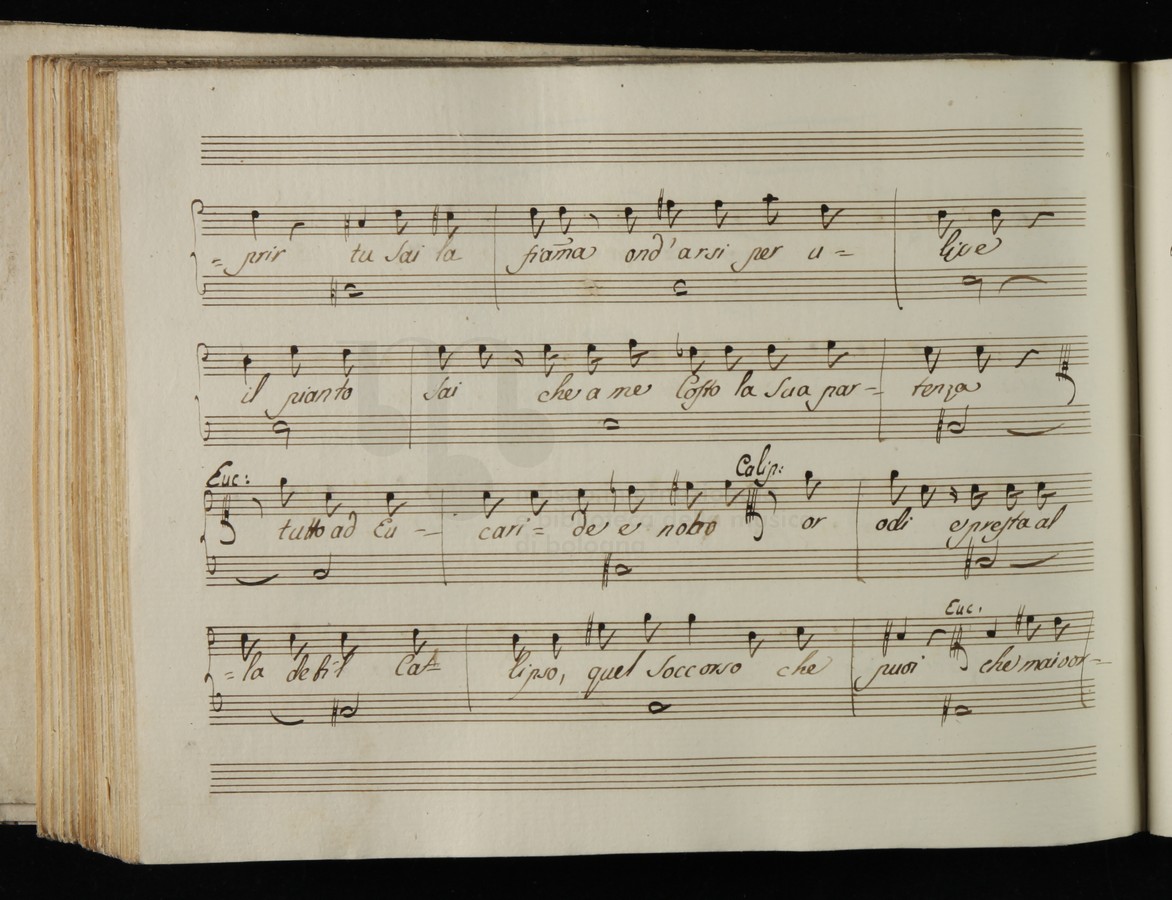 = prir tu sai la fiam̄a ond'arsi per u = lise
il pianto sai che a me Costo la sua par = tenza
Euc: Calip:
tutto ad Eu = cari = de e notto or odi e presta al
Euc.
= la debil Cal = lipso, quel soccorso che puoi che mai oor =